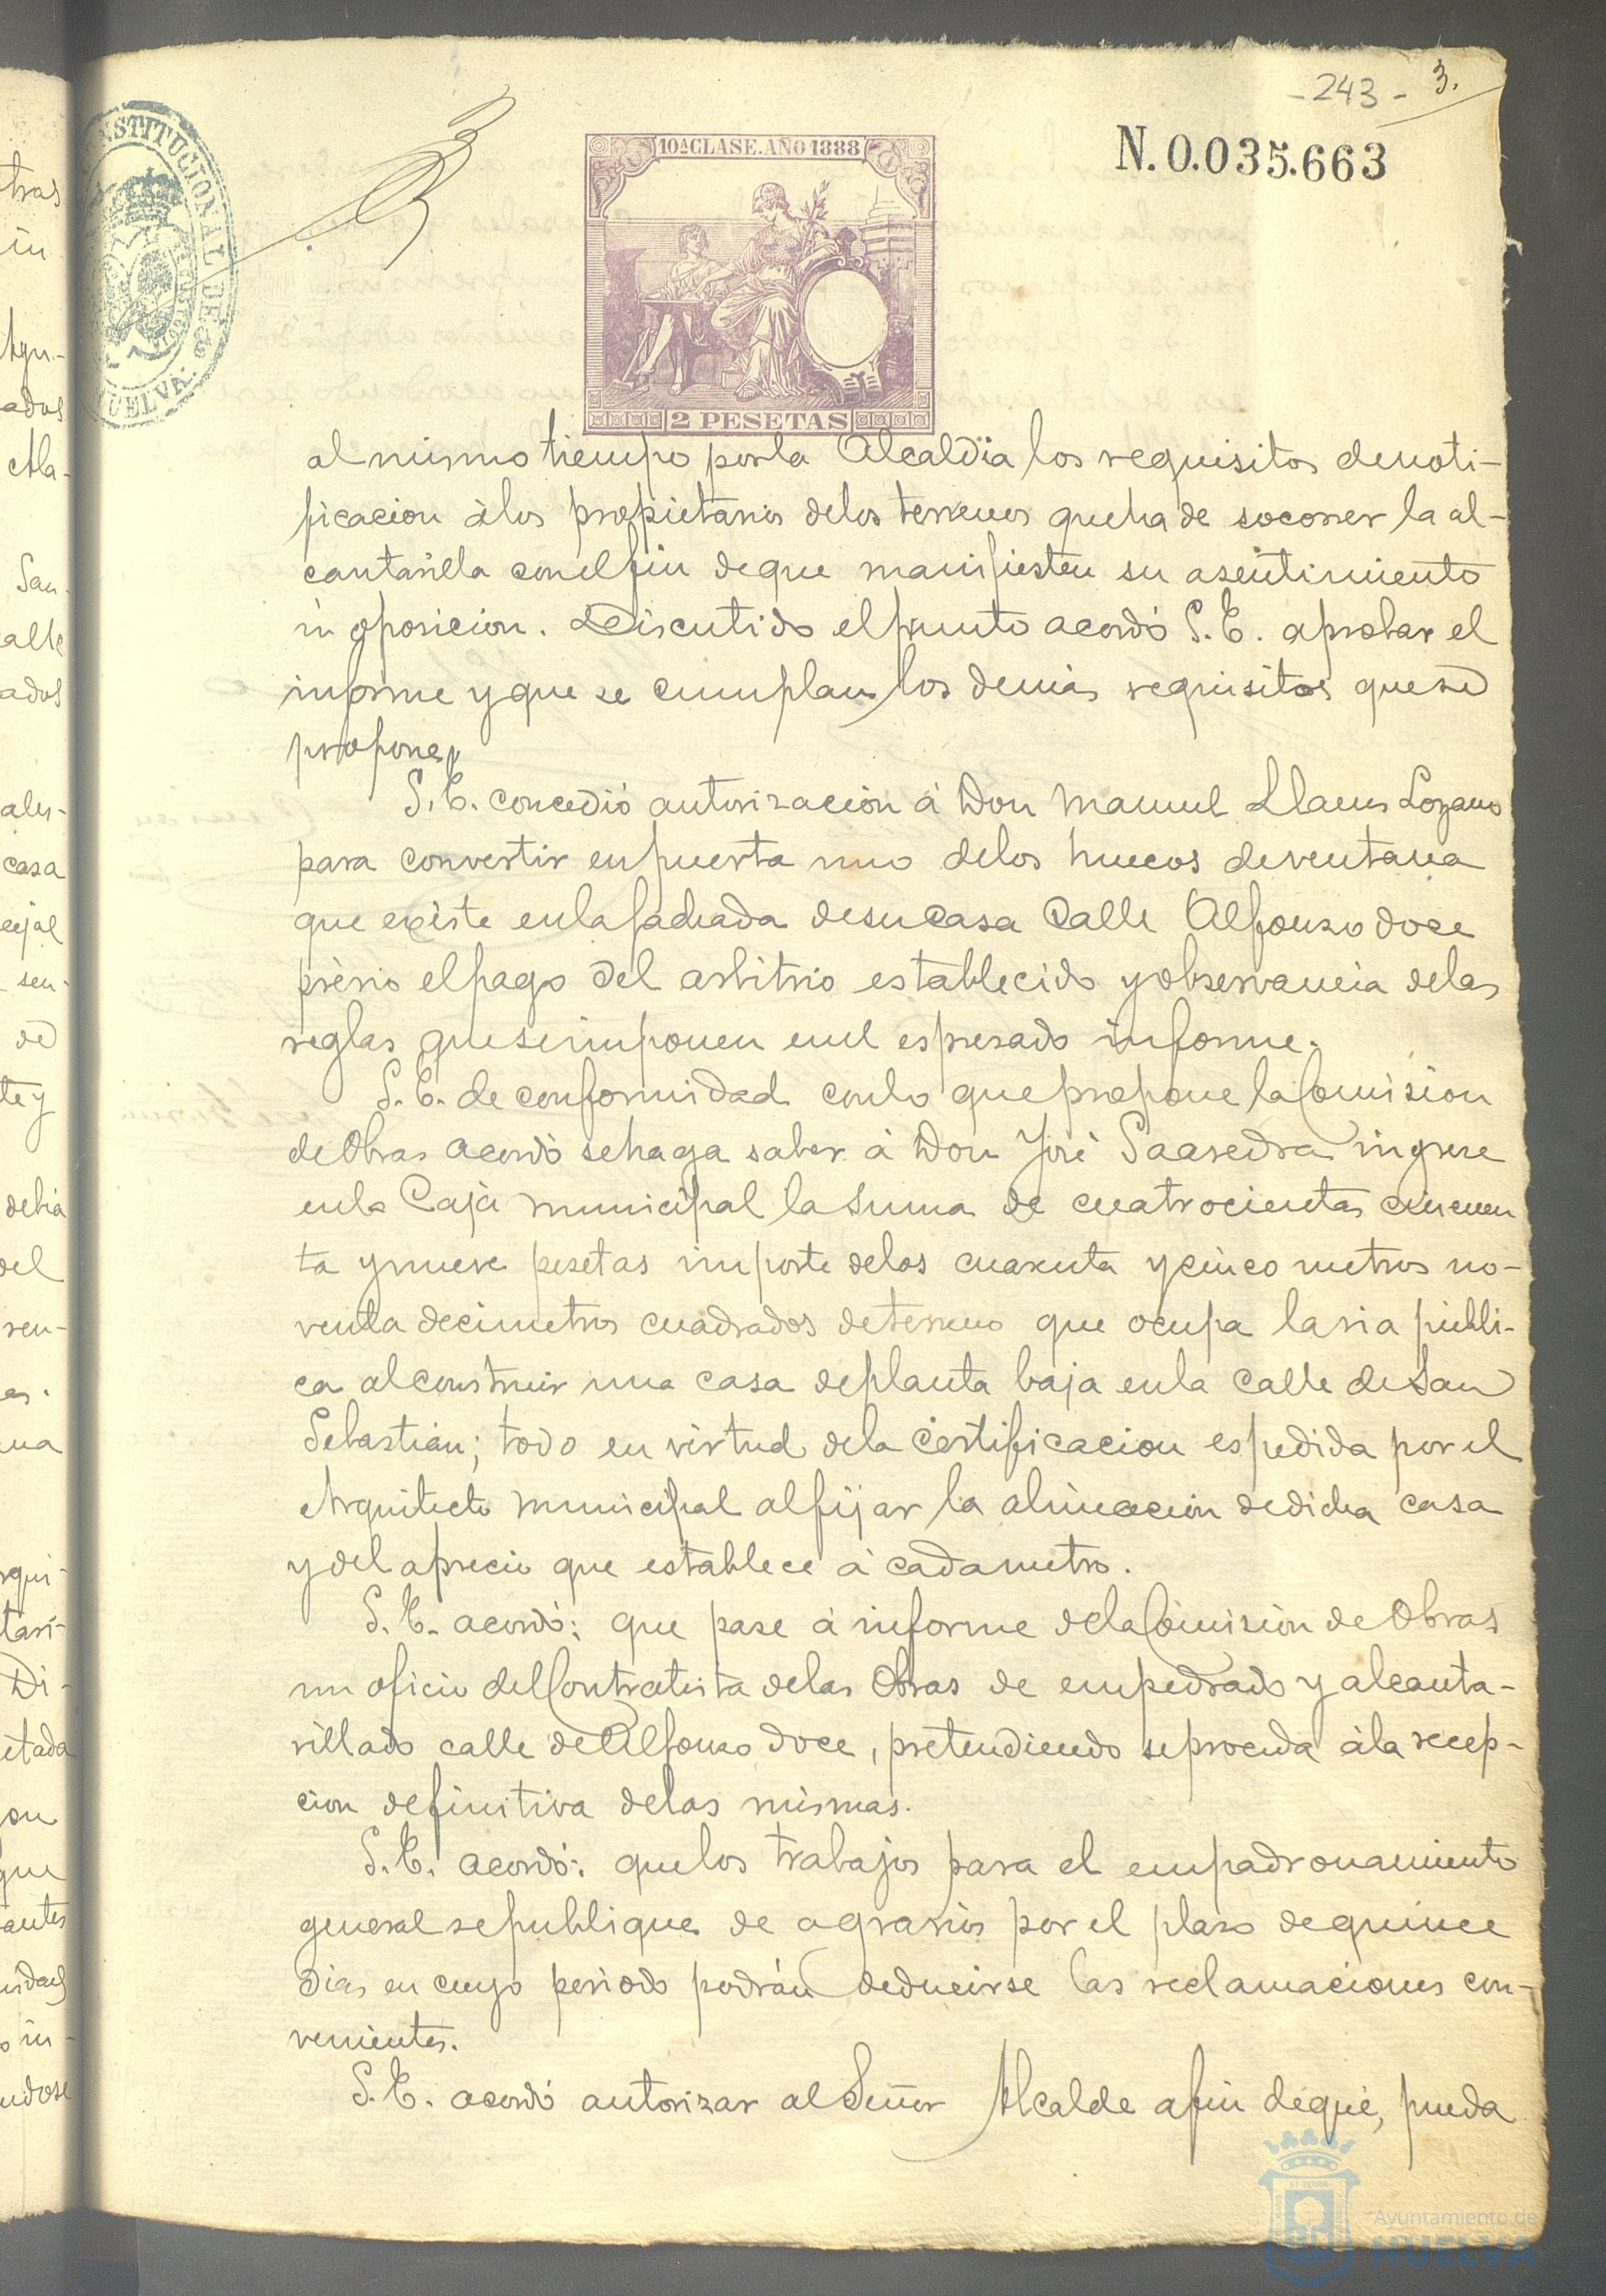 - 243 - 3.
N. 0.035.663
10ª CLASE. AÑO 1888
2 PESETAS
CONSTITUCIONAL DE
HUELVA.
al mismo tiempo por la Alcaldia los requisitos de noti-
ficacion à los propietarios de los terrenos que ha de socorrer la al-
cantarilla con el fin de que manifiesten su asentimiento
ú oposicion. Discutido el punto acordó S. E. aprobar el
informe y que se cumplan los demás requisitos que se
propone.
S. E. concedió autorizacion á Don Manuel Llanes Lozano
para convertir en puerta uno de los huecos de ventana
que existe en la fachada de su casa Calle Alfonso doce
prèvio el pago del arbitrio establecido y observancia de las
reglas que se imponen en el espresado informe.
S. E. de conformidad con lo que propone la Comision
de Obras acordó se haga saber á Don José Saavedra ingrese
en la Caja municipal la suma de cuatrocientas cincuen
ta y nueve pesetas importe de los cuarenta y cinco metros no-
venta decimetros cuadrados de terreno que ocupa la via públi-
ca al construir una casa de planta baja en la calle de San
Sebastián; todo en virtud de la Certificacion espedida por el
Arquitecto municipal al fijar la alineacion de dicha casa
y del aprecio que establece á cada metro.
S. E. acordó: que pase á informe de la Comision de Obras
un oficio del Contratista de las Obras de empedrado y alcanta-
rillado calle de Alfonso doce, pretendiendo se proceda á la recep-
cion definitiva de las mismas.
S. E. acordó: que los trabajos para el empadronamiento
general se publique de agravios por el plazo de quince
dias en cuyo periodo podrán deducirse las reclamaciones con-
venientes.
S. E. acordó autorizar al Señor Alcalde a fin de que, pueda
Ayuntamiento de
HUELVA